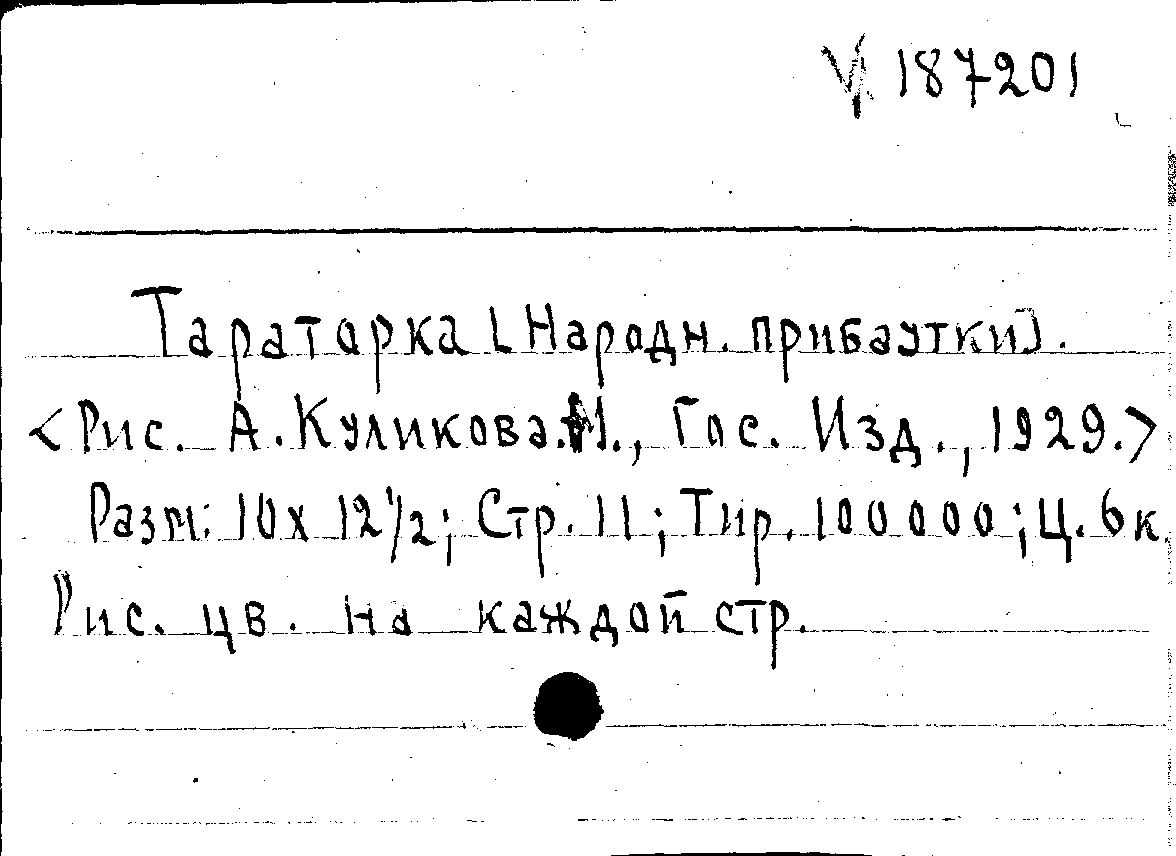 V 187201
Тараторка [Народн. прибаутки].
<Рис. А. Куликова. М., Гос. Изд., 1929.>
Разм: 10 х 12 1/2; Стр. 11; Тир. 100000; Ц. 6 к.
Рис. цв. на каждой стр.